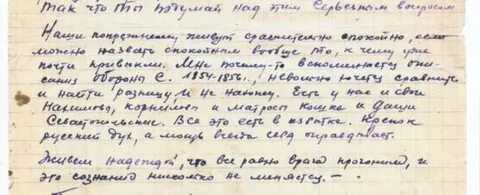 Так что ты подумай над этим серьезным вопросом
Наши по прежнему живут сравнительно спокойно, если
можно назвать спокойным вообще то, к чему уже
почти привыкли. Мне почему-то вспоминается опи-
сания обороны С. 1854-1856, невольно хочется сравнить
и найти разницу и не нахожу. Есть у нас и свои
Нахимовы, Корниловы и матросы Кошка и Даши
Севастопольские. Все это есть в избытке. Крепок
русский дух, а мощь всегда себя оправдывает.
Живем надеждой, что все равно врага прогоним, и
это сознание нисколько не меняется. —